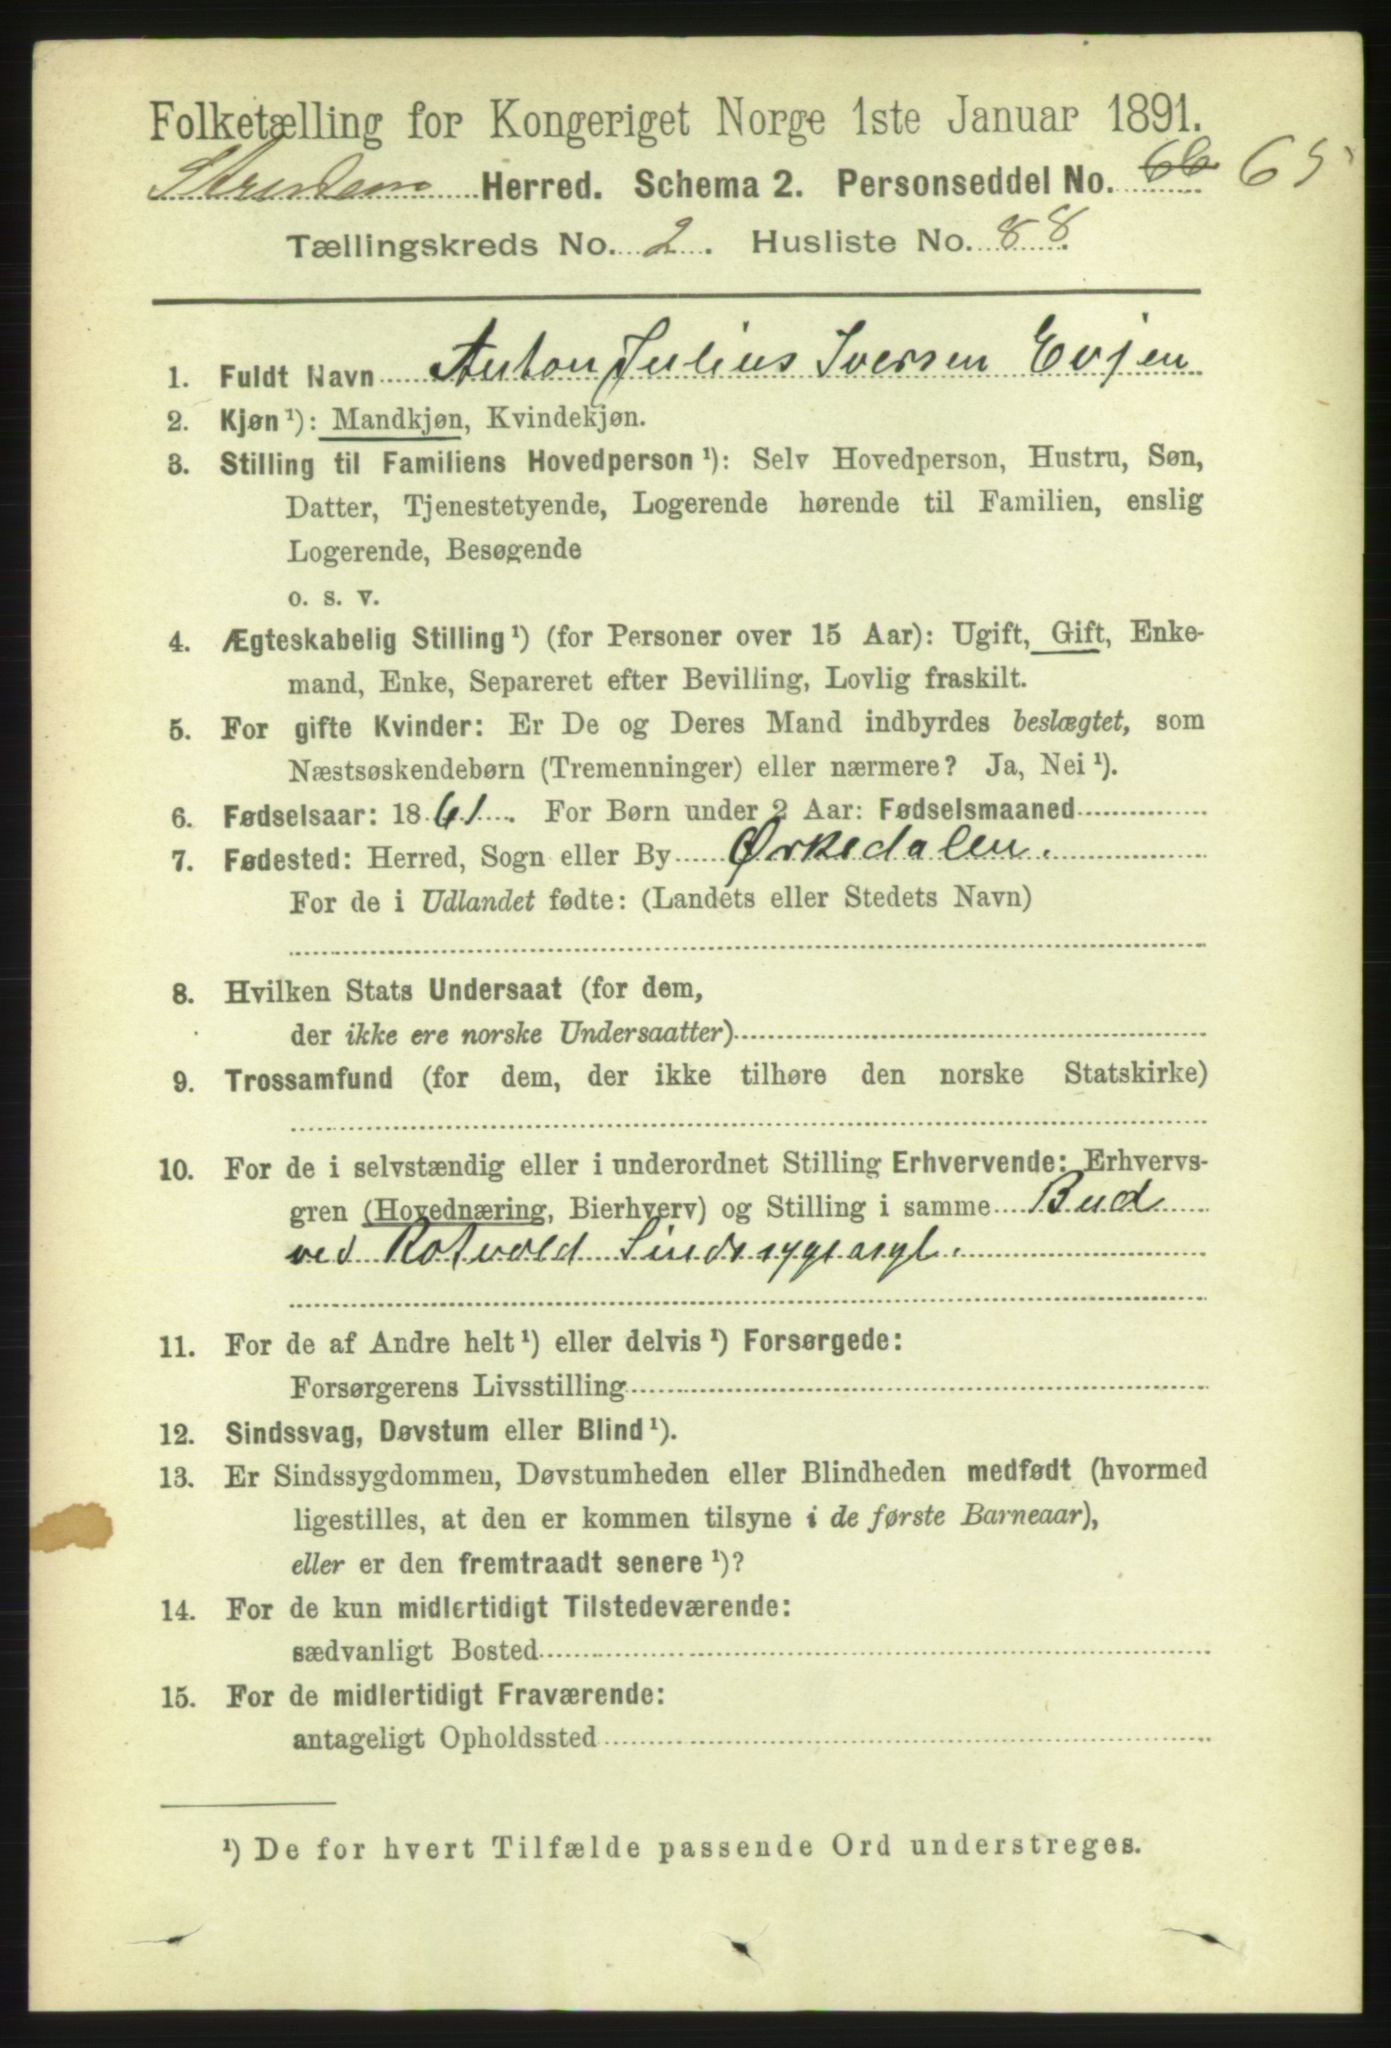 Folketælling for Kongeriget Norge 1ste Januar 1891.
Strinden Herred. Schema 2. Personseddel No. 66 65
Tællingskreds No. 2. Husliste No. 88.
1. Fuldt Navn Anton Julius Iversen Evjen
2. Kjøn ¹): Mandkjøn, Kvindekjøn.
3. Stilling til Familiens Hovedperson ¹): Selv Hovedperson, Hustru, Søn,
Datter, Tjenestetyende, Logerende hørende til Familien, enslig
Logerende, Besøgende
o. s. v.
4. Ægteskabelig Stilling ¹) (for Personer over 15 Aar): Ugift, Gift, Enke-
mand, Enke, Separeret efter Bevilling, Lovlig fraskilt.
5. For gifte Kvinder: Er De og Deres Mand indbyrdes beslægtet, som
Næstsøskendebørn (Tremenninger) eller nærmere? Ja, Nei ¹).
6. Fødselsaar: 1861. For Børn under 2 Aar: Fødselsmaaned
7. Fødested: Herred, Sogn eller By Ørkedalen.
For de i Udlandet fødte: (Landets eller Stedets Navn)
8. Hvilken Stats Undersaat (for dem,
der ikke ere norske Undersaatter)
9. Trossamfund (for dem, der ikke tilhøre den norske Statskirke)
10. For de i selvstændig eller i underordnet Stilling Erhvervende: Erhvervs-
gren (Hovednæring, Bierhverv) og Stilling i samme Bud
ved Rotvold Sindssygeasyl.
11. For de af Andre helt ¹) eller delvis ¹) Forsørgede:
Forsørgerens Livsstilling
12. Sindssvag, Døvstum eller Blind ¹).
13. Er Sindssygdommen, Døvstumheden eller Blindheden medfødt (hvormed
ligestilles, at den er kommen tilsyne i de første Barneaar),
eller er den fremtraadt senere ¹)?
14. For de kun midlertidigt Tilstedeværende:
sædvanligt Bosted
15. For de midlertidigt Fraværende:
antageligt Opholdssted
¹) De for hvert Tilfælde passende Ord understreges.